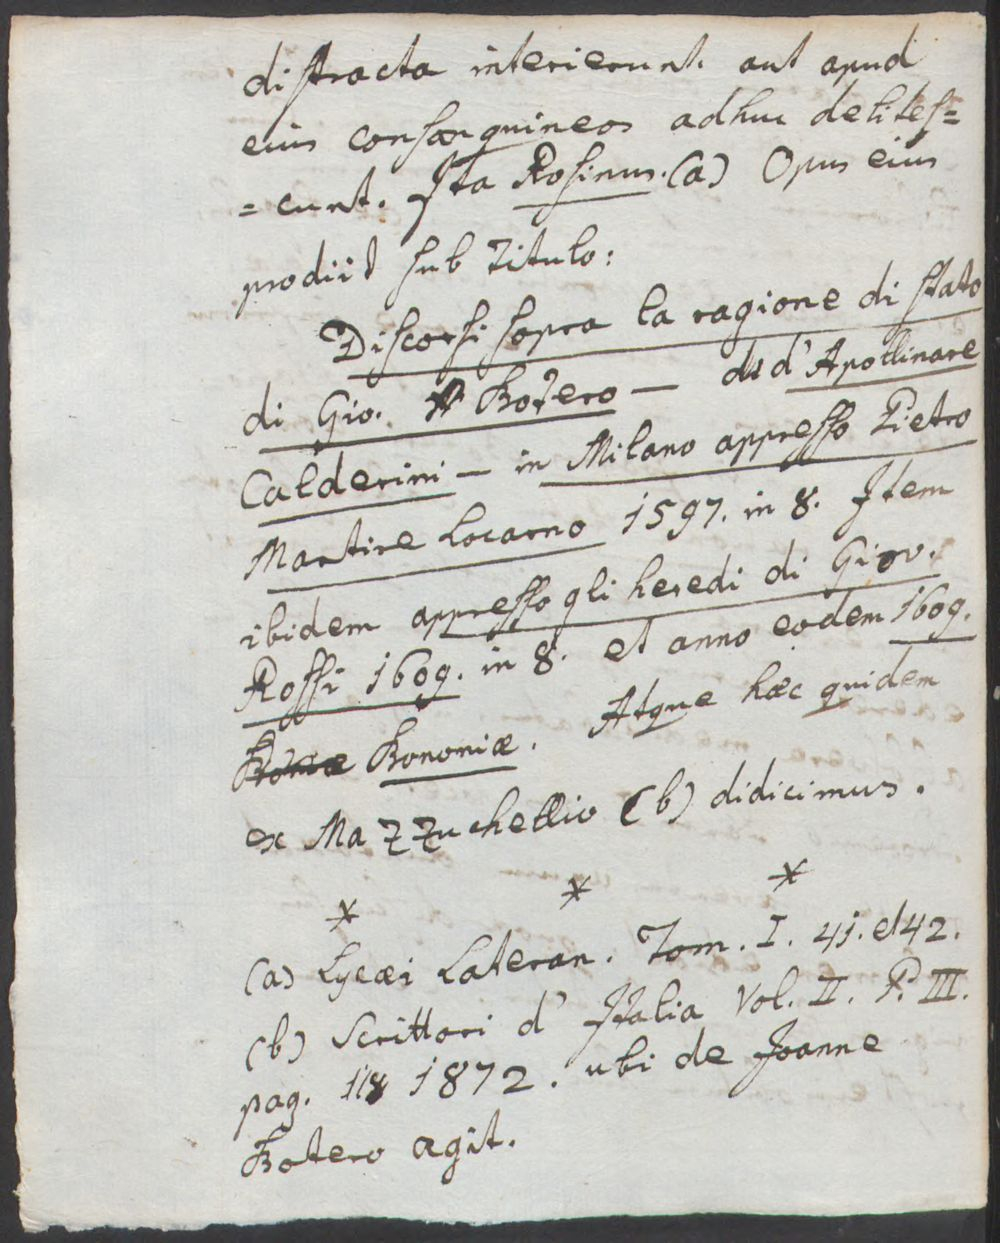 distracta interierunt. aut apud
eius consanguineos adhuc delites=
=cunt. Ita Rosinus. (a) Opus eius
prodiit sub titulo:
Discorsi sopra la ragione di stato
di Gio. Botero — d'Apollinare
Calderini — in Milano appresso Pietro
Martire Locarno 1597. in 8. Item
ibidem appresso gli heredi di Giov.
Rossi 1609. in 8. et anno eodem 1609.
Bononiæ. Atque hæc quidem
ex Mazzuchellio (b) didicimus.
* * *
(a) Lycæi Lateran. Tom. I. 41. et 42.
(b) Scrittori d' Italia Vol. II. P. III.
pag. 1872. ubi de Joanne
Botero agit.